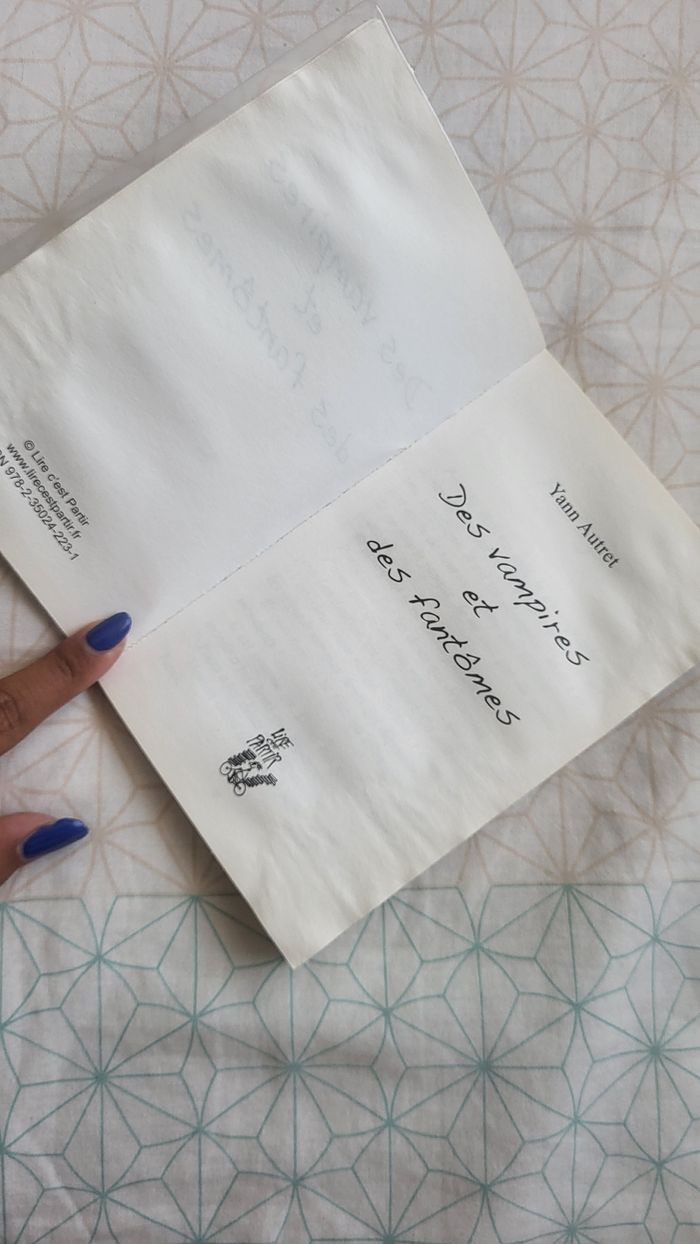 © Lire c'est Partir
www.lirecestpartir.fr
978-2-35024-223-1
Yann Autret
Des vampires
et
des fantômes
LIRE
C'EST
PARTIR